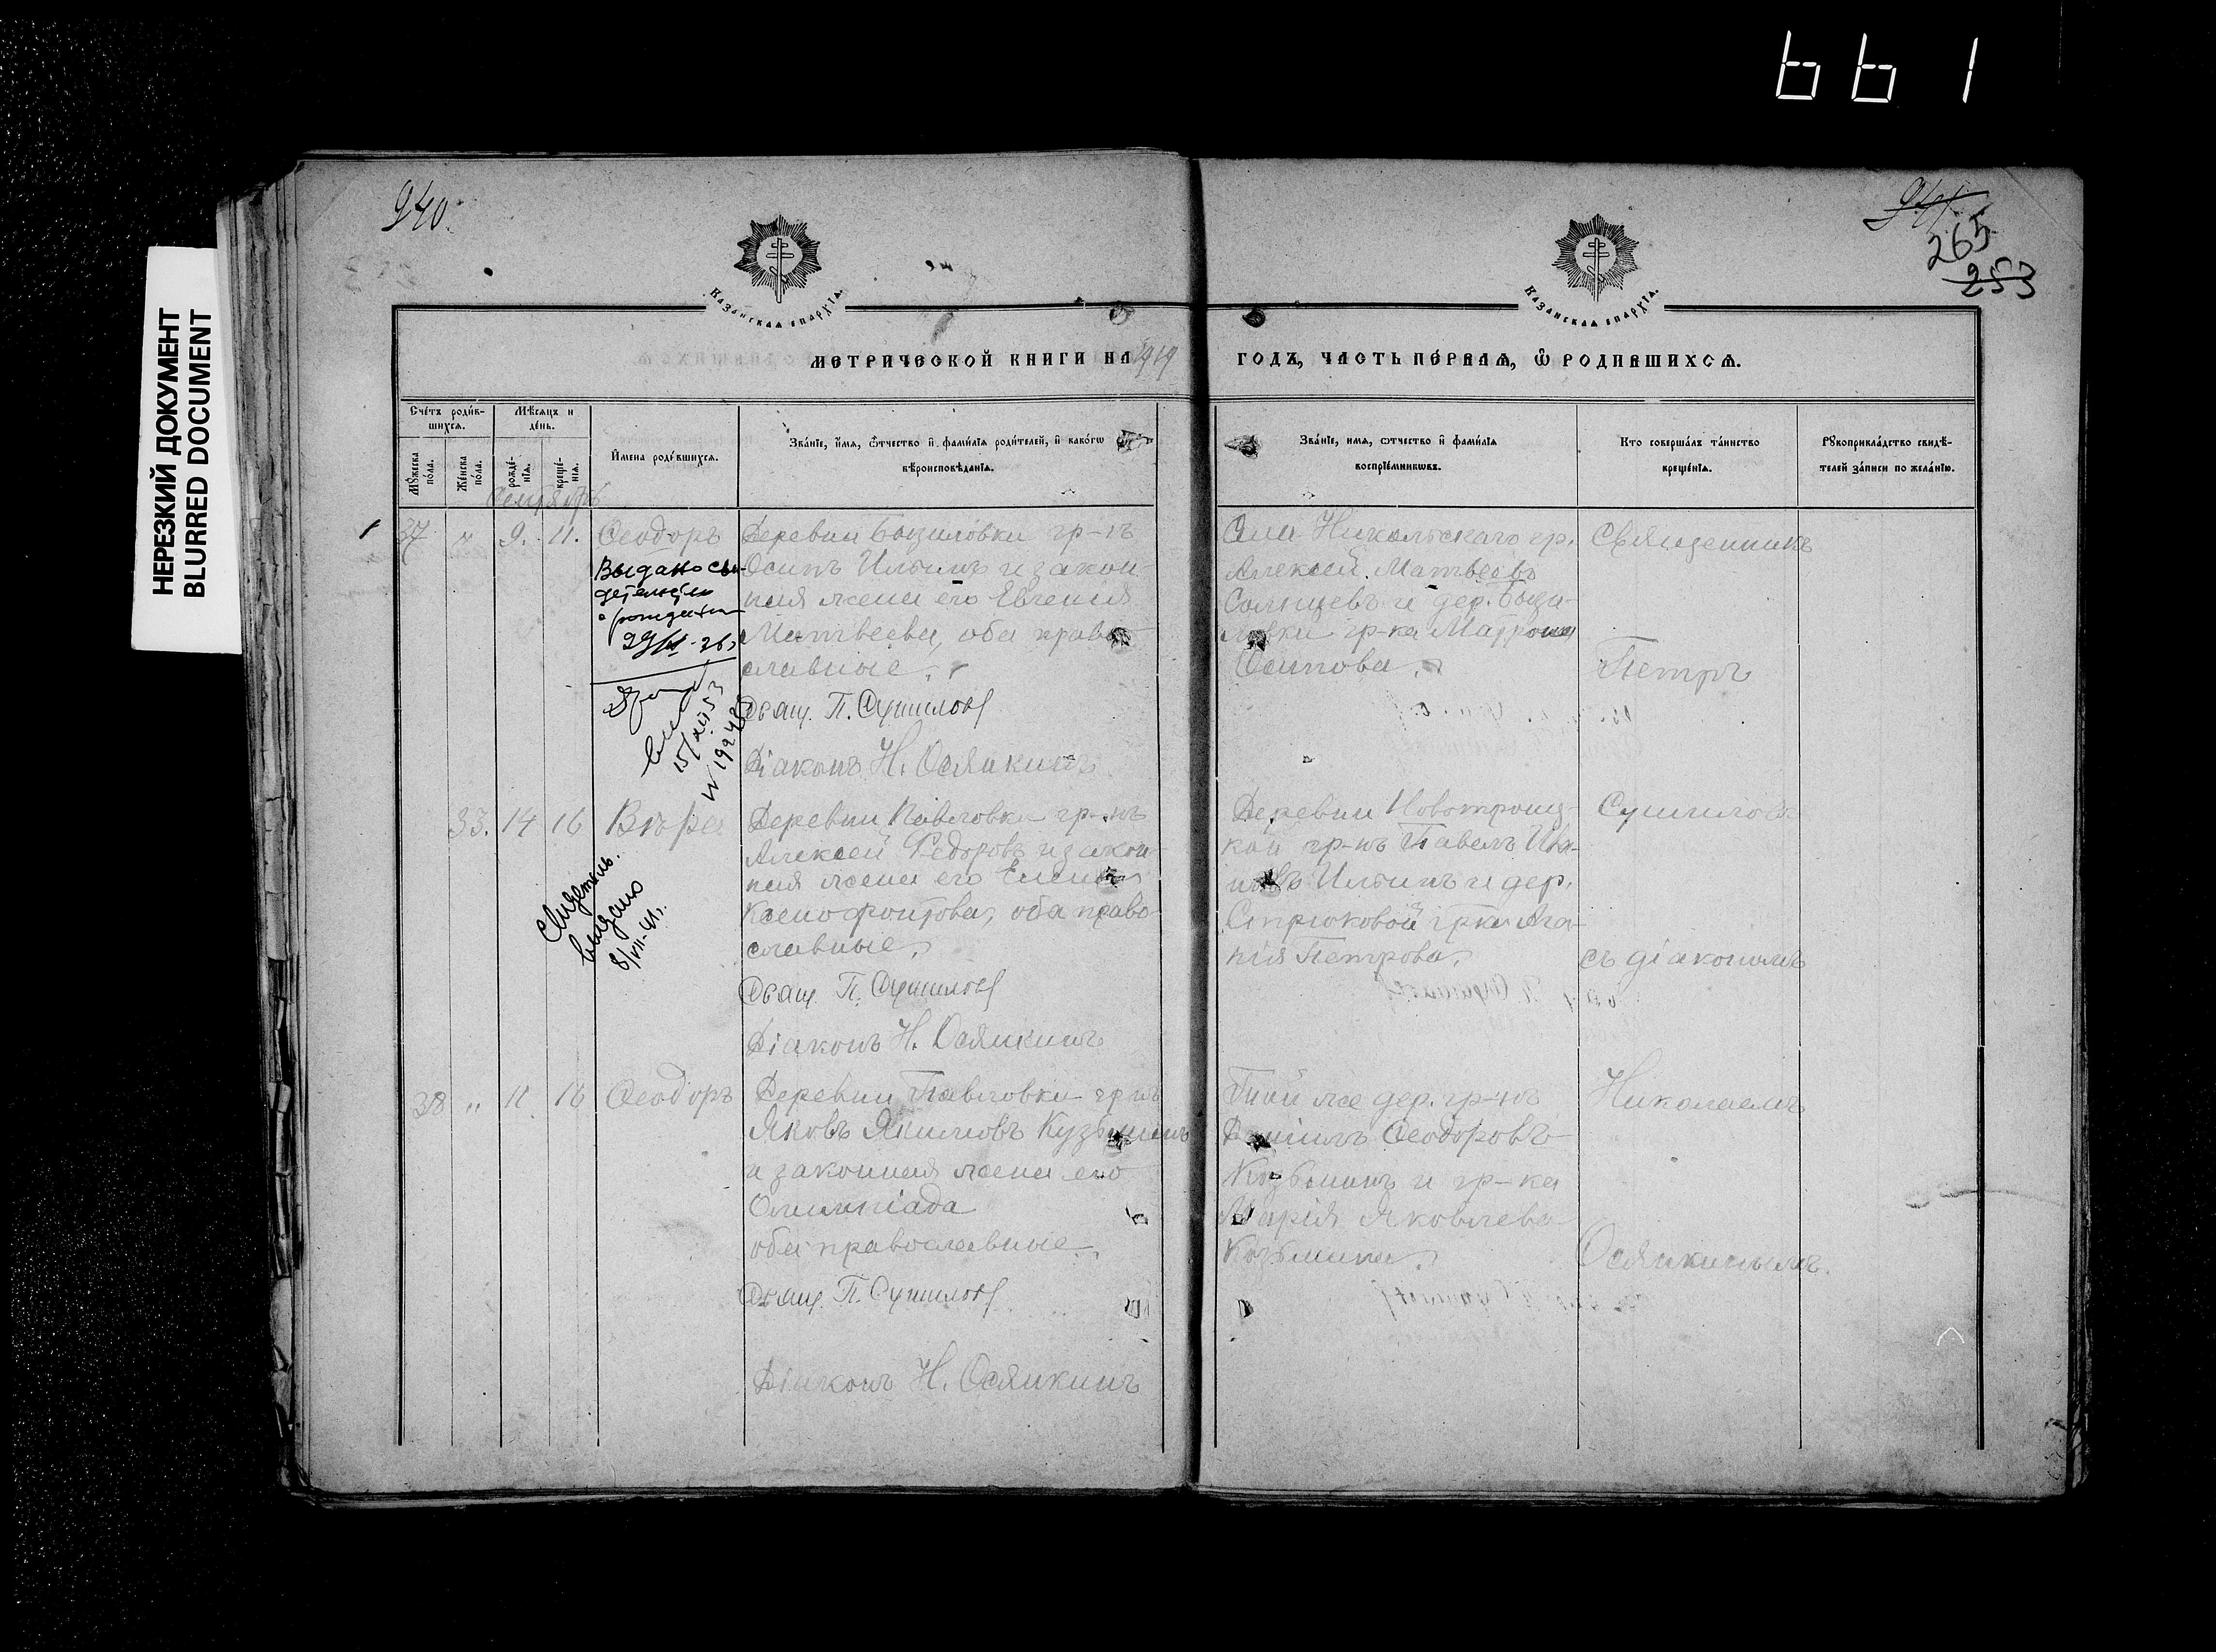 661
НЕРЕЗКИЙ ДОКУМЕНТ
BLURRED DOCUMENT
240.
265
253
Казанская епархіѧ.
Казанская епархіѧ.
МЕТРИЧЕСКОЙ КНИГИ НА 1919
ГОДЪ, ЧАСТЬ ПЕ́РВАѦ, Ѿ РОДИВШИХСѦ.
Сче́тъ роди́в-
шихся.
Мѣ́сяцъ и
де́нь.
Му́жеска
по́ла.
Же́нска
по́ла.
рожде́-
нія.
креще́-
нія.
Имена роди́вшихся.
Зва́ніе, и́мя, ѻ́тчество и фами́лія роди́телей, и како́гѡ
вѣроисповѣ́данія.
Зва́ніе, имя, ѻтчество и фами́лія
воспріе́мникѡвъ.
Кто соверша́лъ та́инство
креще́нія.
Рꙋкоприкла́дство свидѣ́-
телей за́писи по жела́нію.
Сентябрь
37 „ 9. 11. Ѳеодоръ
Выдано сви-
детельство
о рождении
15/XII 53
Деревни Бызиловки гр-нъ
Осипъ Ильинъ и закон-
ная жена его Евгенія
Матвеева, оба право-
славные.
Свящ. П. Сушиловъ
Діаконъ Н. Осянкинъ
Села Никольскаго гр.
Алексей Матвеевъ
Солнцевъ и дер. Бызи-
ловки гр-ка Матрона
Осипова.
Священникъ
Петръ
33. 14 16 Вѣра
Свидетель.
выдано
8/VII-41г.
Деревни Павловки гр-нъ
Алексей Федоровъ и закон-
ная жена его Елена
Ксенофонтова, оба право-
славные.
Свящ. П. Сушиловъ
Діаконъ Н. Осянкинъ
Деревни Новотроиц-
кой гр-нъ Павелъ Ива-
новъ Ильинъ и дер.
Стрюковой гр-ка Ага-
пія Петрова.
Сушиловъ
съ діакономъ
38 „ 11. 16 Ѳеодоръ
Деревни Павловки гр-нъ
Яковъ Якимовъ Кузьминъ
и законная жена его
Олимпіада
оба православные.
Свящ. П. Сушиловъ
Діаконъ Н. Осянкинъ
Той же дер. гр-нъ
Даніилъ Ѳеодоровъ
Козьминъ и гр-ка
Марія Яковлева
Козьмина.
Николаемъ
Осянкинымъ.